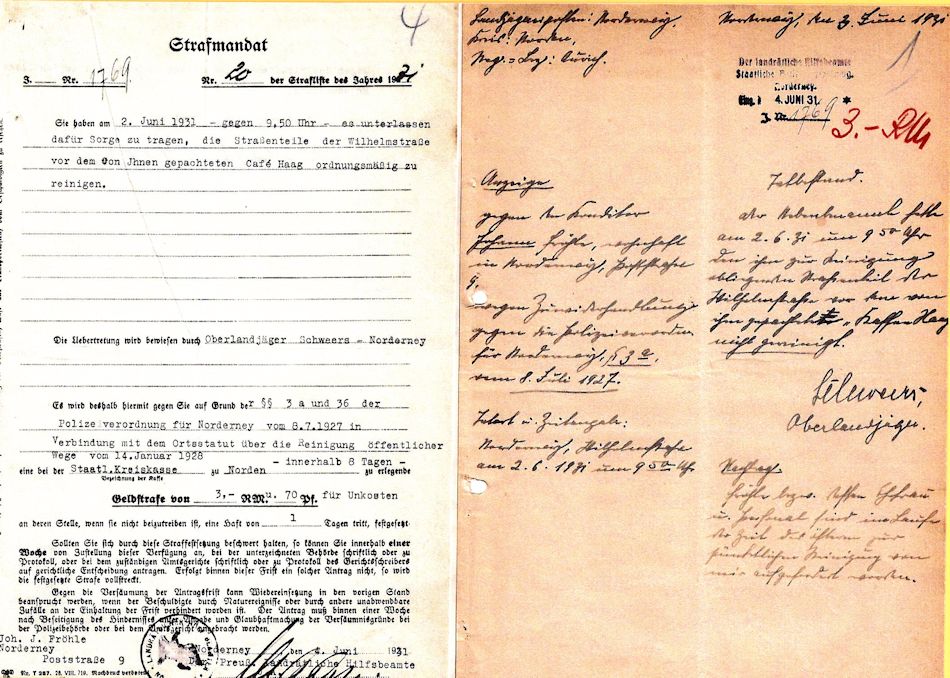 4
Strafmandat
J. Nr. 1769 Nr. 20 der Strafliste des Jahres 1931
Sie haben am 2. Juni 1931 - gegen 9,50 Uhr - es unterlassen
dafür Sorge zu tragen, die Straßenteile der Wilhelmstraße
vor dem von Jhnen gepachteten Café Haag ordnungsmäßig zu
reinigen.
Die Uebertretung wird bewiesen durch Oberlandjäger Schweers - Norderney
Es wird deshalb hiermit gegen Sie auf Grund der §§ 3 a und 36 der
Polizeverordnung für Norderney vom 8.7.1927 in
Verbindung mit dem Ortsstatut über die Reinigung öffentlicher
Wege vom 14.Januar 1928 - innerhalb 8 Tagen -
eine bei der Staatl.Kreiskasse zu Norden zu erlegende
Bezeichnung der Kasse
Geldstrafe von 3,- RM. u. 70 Pf. für Unkosten
an deren Stelle, wenn sie nicht beizutreiben ist, eine Haft von 1 Tagen tritt, festgesetzt.
Sollten Sie sich durch diese Straffestsetzung beschwert halten, so können Sie innerhalb einer
Woche von Zustellung dieser Verfügung an, bei der unterzeichneten Behörde schriftlich oder zu
Protokoll, oder bei dem zuständigen Amtsgerichte schriftlich oder zu Protokoll des Gerichtsschreibers
auf gerichtliche Entscheidung antragen. Erfolgt binnen dieser Frist ein solcher Antrag nicht, so wird
die festgesetzte Strafe vollstreckt.
Gegen die Versäumung der Antragsfrist kann Wiedereinsetzung in den vorigen Stand
beansprucht werden, wenn der Beschuldigte durch Naturereignisse oder durch andere unabwendbare
Zufälle an der Einhaltung der Frist verhindert worden ist. Der Antrag muß binnen einer Woche
nach Beseitigung des Hindernisses unter Angabe und Glaubhaftmachung der Versäumnisgründe bei
der Polizeibehörde oder bei dem Amtsgericht angebracht werden.
Joh. J. Fröhle
Norderney
Poststraße 9
Norderney, den 4. Juni 1931
Der Preuß. Landrätliche Hilfsbeamte
Nr. T 287. 28. VIII. 719. Nachdruck verboten
Landjägereiposten: Norderney,
Kreis: Norden,
Reg.=Bez: Aurich.
Norderney, den 3. Juni 1931
1
Der landrätliche Hilfsbeamte
Staatliche
Norderney.
Eing. 4. JUNI 31. *
J. Nr. 1769
3.- RM
Anzeige
gegen den Konditor
Johann Fröhle, wohnhaft
in Norderney, Poststraße
9,
wegen Zuwiderhandlung
gegen die Polizeiverordnung
für Norderney, § 3a,
vom 8. Juli 1927.
Tatort u. Zeitangabe:
Norderney, Wilhelmstraße
am 2.6.1931 um 9 50 Uhr
Tatbestand.
Der Nebenbenannte hatte
am 2.6.31 um 9 50 Uhr
den ihm zur Reinigung
obliegenden Straßenteil der
Wilhelmstraße vor dem von
ihm gepachteten "Kaffee Haag"
nicht gereinigt.
Schweers,
Oberlandjäger.
Nachtrag.
Fröhle bezw. dessen Ehefrau
u. Personal sind im Laufe
der Zeit des öfteren zur
pünktlichen Reinigung von
mir aufgefordert worden.